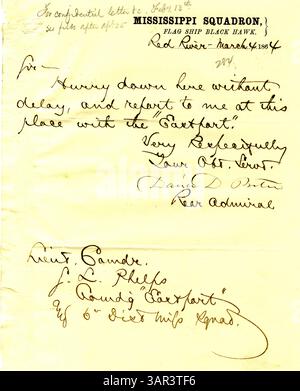 For confidential letter to Feby 13th
see
MISSISSIPPI SQUADRON,
FLAG SHIP BLACK HAWK.
Red River - March 4 1864
284.
Sir -
Hurry down here without
delay, and report to me at this
place with the "Eastport".
Very Respectfully
Your Obt. Servt.
David D. Porter
Rear Admiral
Lieut. Comdr.
S. L. Phelps
Comdg "Eastport"
6th Dist Miss Squad.
alamy
Image ID: 3AR3TF6
www.alamy.com